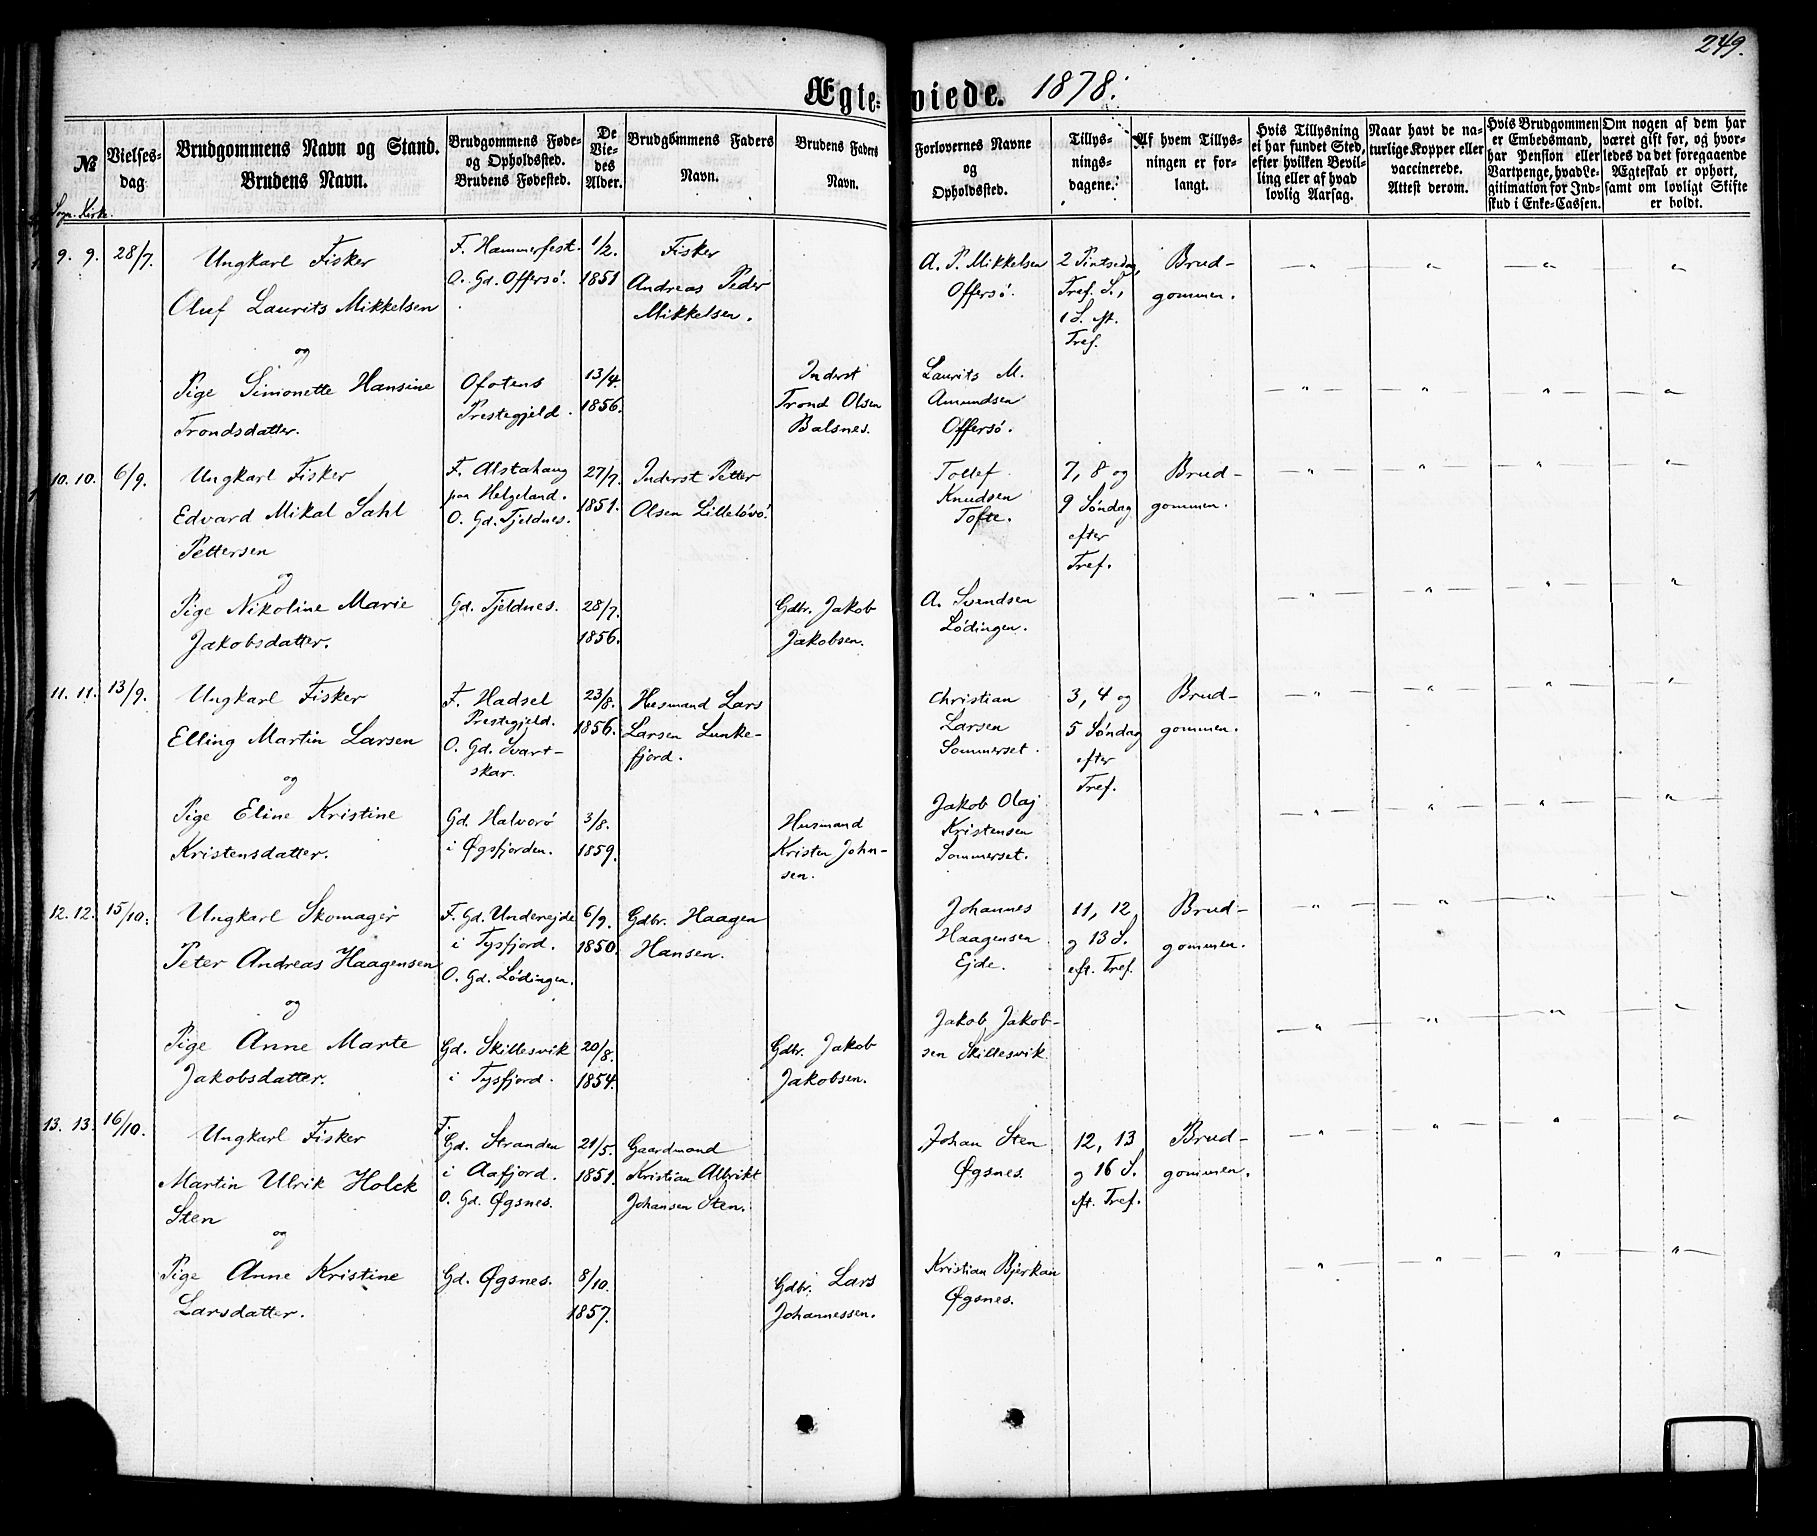 249.
Ægteviede. 1878.
№
Sogn. Kirke.
Vielses-
dag
Brudgommens Navn og Stand.
Brudens Navn.
Brudgommens Føde-
og Opholdssted.
Brudens Fødested.
De
Vie-
des
Alder.
Brudgommens Faders
Navn.
Brudens Faders
Navn.
Forlovernes Navne
og
Opholdssted.
Tillys-
nings-
dagene.
Af hvem Tillys-
ningen er for-
langt.
Hvis Tillysning
ei har fundet Sted,
efter hvilken Bevil-
ling eller af hvad
lovlig Aarsag.
Naar havt de na-
turlige Kopper eller
vaccinerede.
Attest derom.
Hvis Brudgommen
er Embedsmand,
har Pension eller
Vartpenge, hvad Le-
gitimation for Ind-
skud i Enke-Cassen.
Om nogen af dem har
været gift før, og hvor-
ledes da det foregaaende
Ægteskab er ophørt,
samt om lovligt Skifte
er holdt.
9. 9. 28/7.
Ungkarl Fisker
Oluf Laurits Mikkelsen
F. Hammerfest.
O. Gd. Offersö.
1/2.
1851
Fisker
Andreas Peder
Mikkelsen.
A. P. Mikkelsen
Offersö.
2 Pintsedag,
Tref. S.,
1 S. eft.
Tref.
Brud-
gommen.
og
Pige Simonette Hansine
Trondsdatter.
Ofotens
Prestegjeld.
13/4.
1856.
Inderst
Trond Olsen
Balsnes.
Laurits M.
Amundsen
Offersö.
10. 10. 6/9.
Ungkarl Fisker
Edvard Mikal Dahl
Pettersen
F. Alstahaug
paa Helgeland.
O. Gd. Tjeldnes.
27/7.
1851.
Inderst Petter
Olsen Lilleløvö.
Tollef
Knudsen
Tofte.
7, 8 og
9 Söndag
efter
Tref.
Brud-
gommen.
og
Pige Nikoline Marie
Jakobsdatter.
Gd. Tjeldnes.
28/7.
1856.
Gdbr. Jakob
Jakobsen.
A. Svendsen
Lödingen.
11. 11. 13/9.
Ungkarl Fisker
Elling Martin Larsen
F. Hadsel
Prestegjeld.
O. Gd. Svart-
skar.
23/8.
1856.
Husmand Lars
Larsen Lunke-
fjord.
Christian
Larsen
Sommerset.
3, 4 og
5 Söndag
efter
Tref.
Brud-
gommen.
og
Pige Eline Kristine
Kristensdatter.
Gd. Halvorö
i Øgsfjorden.
3/8.
1859.
Husmand
Kristen John-
sen.
Jakob Olaj
Kristensen
Sommerset.
12. 12. 15/10.
Ungkarl Skomager
Peter Andreas Haagensen
F. Gd. Underejde
i Tysfjord.
O. Gd. Lödingen.
6/9.
1850.
Gdbr. Haagen
Hansen.
Johannes
Haagensen
Ejde.
11, 12
og 13 S.
eft. Tref.
Brud-
gommen.
og
Pige Anne Marte
Jakobsdatter.
Gd. Skillesvik
i Tysfjord.
20/8.
1854.
Gdbr. Jakob
Jakobsen.
Jakob Jakob-
sen Skillesvik.
13. 13. 16/10.
Ungkarl Fisker
Martin Ulrik Holck
Sten
F.
Gd. Stranden
i Aafjord.
O. Gd. Øgsnes.
21/5.
1851.
Gaardmand
Kristian Albrikt
Johansen Sten.
Johan Sten
Øgsnes.
12, 13
og 16 S.
eft. Tref.
Brud-
gommen.
og
Pige Anne Kristine
Larsdatter.
Gd. Øgsnes.
8/10.
1857.
Gdbr. Lars
Johannessen.
Kristian Bjerkan
Øgsnes.